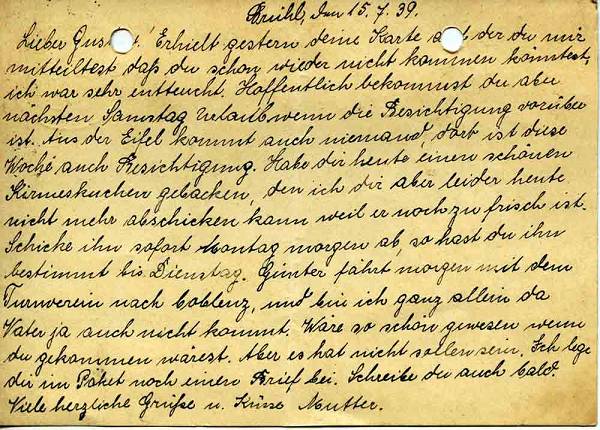 Brühl, den 15.7.39.
Lieber Gus! Erhielt gestern deine Karte auf der du mir
mitteiltest daß du schon wieder nicht kommen könntest,
ich war sehr entteucht. Hoffentlich bekommst du aber
nächsten Samstag Urlaub wenn die Besichtigung vorüber
ist. Aus der Eifel kommt auch niemand, dort ist diese
Woche auch Besichtigung. Habe dir heute einen schönen
Kirmeskuchen gebacken, den ich dir aber leider heute
nicht mehr abschicken kann weil er noch zu frisch ist.
Schicke ihn sofort Montag morgen ab, so hast du ihn
bestimmt bis Dienstag. Günter fährt morgen mit dem
Turnverein nach Coblenz, und bin ich ganz allein da
Vater ja auch nicht kommt. Wäre so schön gewesen wenn
du gekommen warest. Aber es hat nicht sollen sein. Ich lege
dir im Paket noch einen Brief bei. Schreibe du auch bald.
Viele herzliche Grüße u. Küsse Mutter.